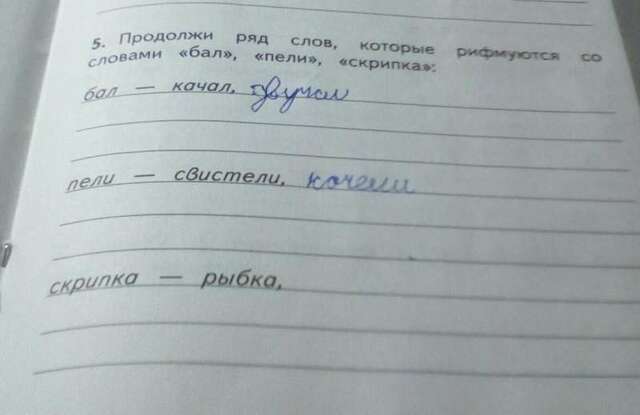 5. Продолжи ряд слов, которые рифмуются со
словами «бал», «пели», «скрипка»:
бал — качал,
пели — свистели,
скрипка — рыбка,